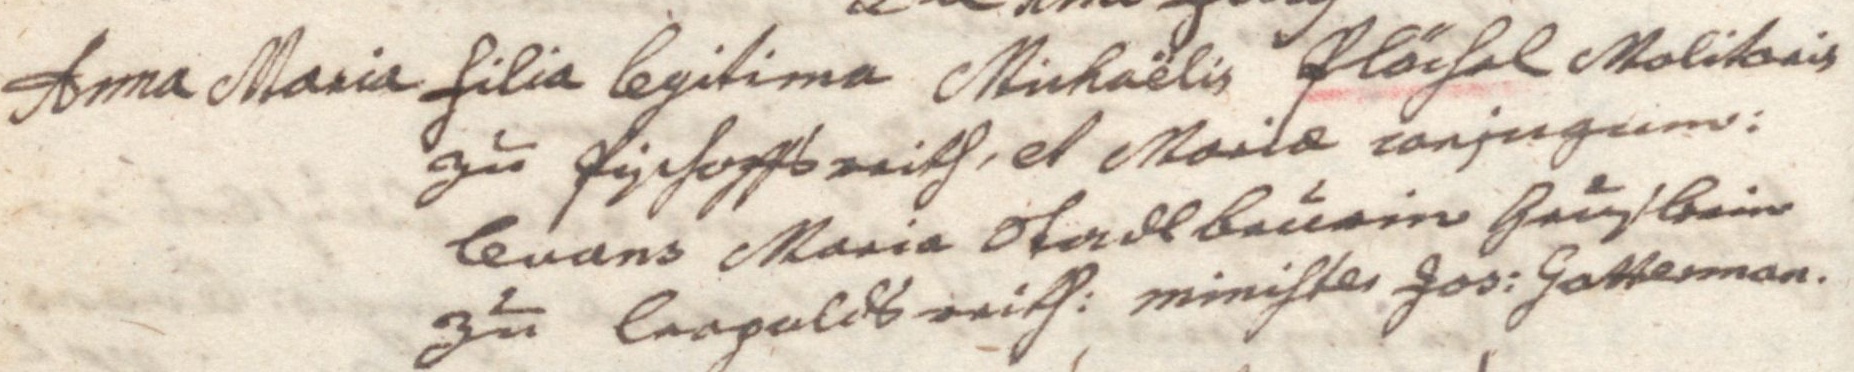 Anna Maria filia legitima Michaëlis Plöchsl Molitoris
zu Pischoffsreith, et Mariæ conjugum:
levans Maria Stadlbaürin Haüslerin
zu Leopoldsreith: minister Jos: Gatterman.